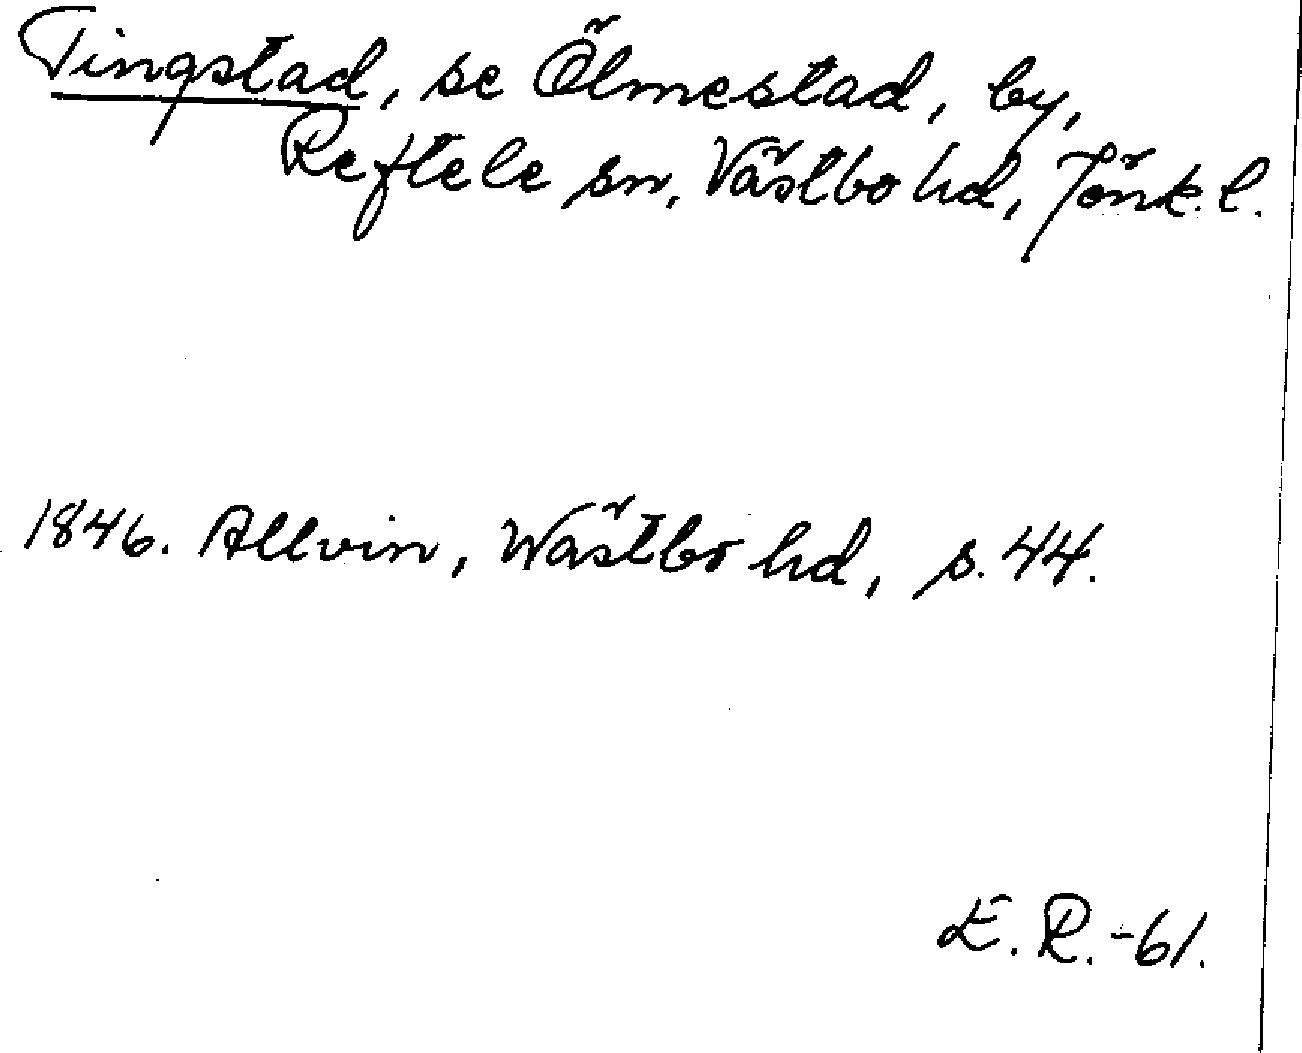 Tingstad, se Ölmestad, by,
Reftele sn, Västbo hd, Jönk. l.
1846. Allvin, Wästbo hd, s. 44.
E. R. -61.